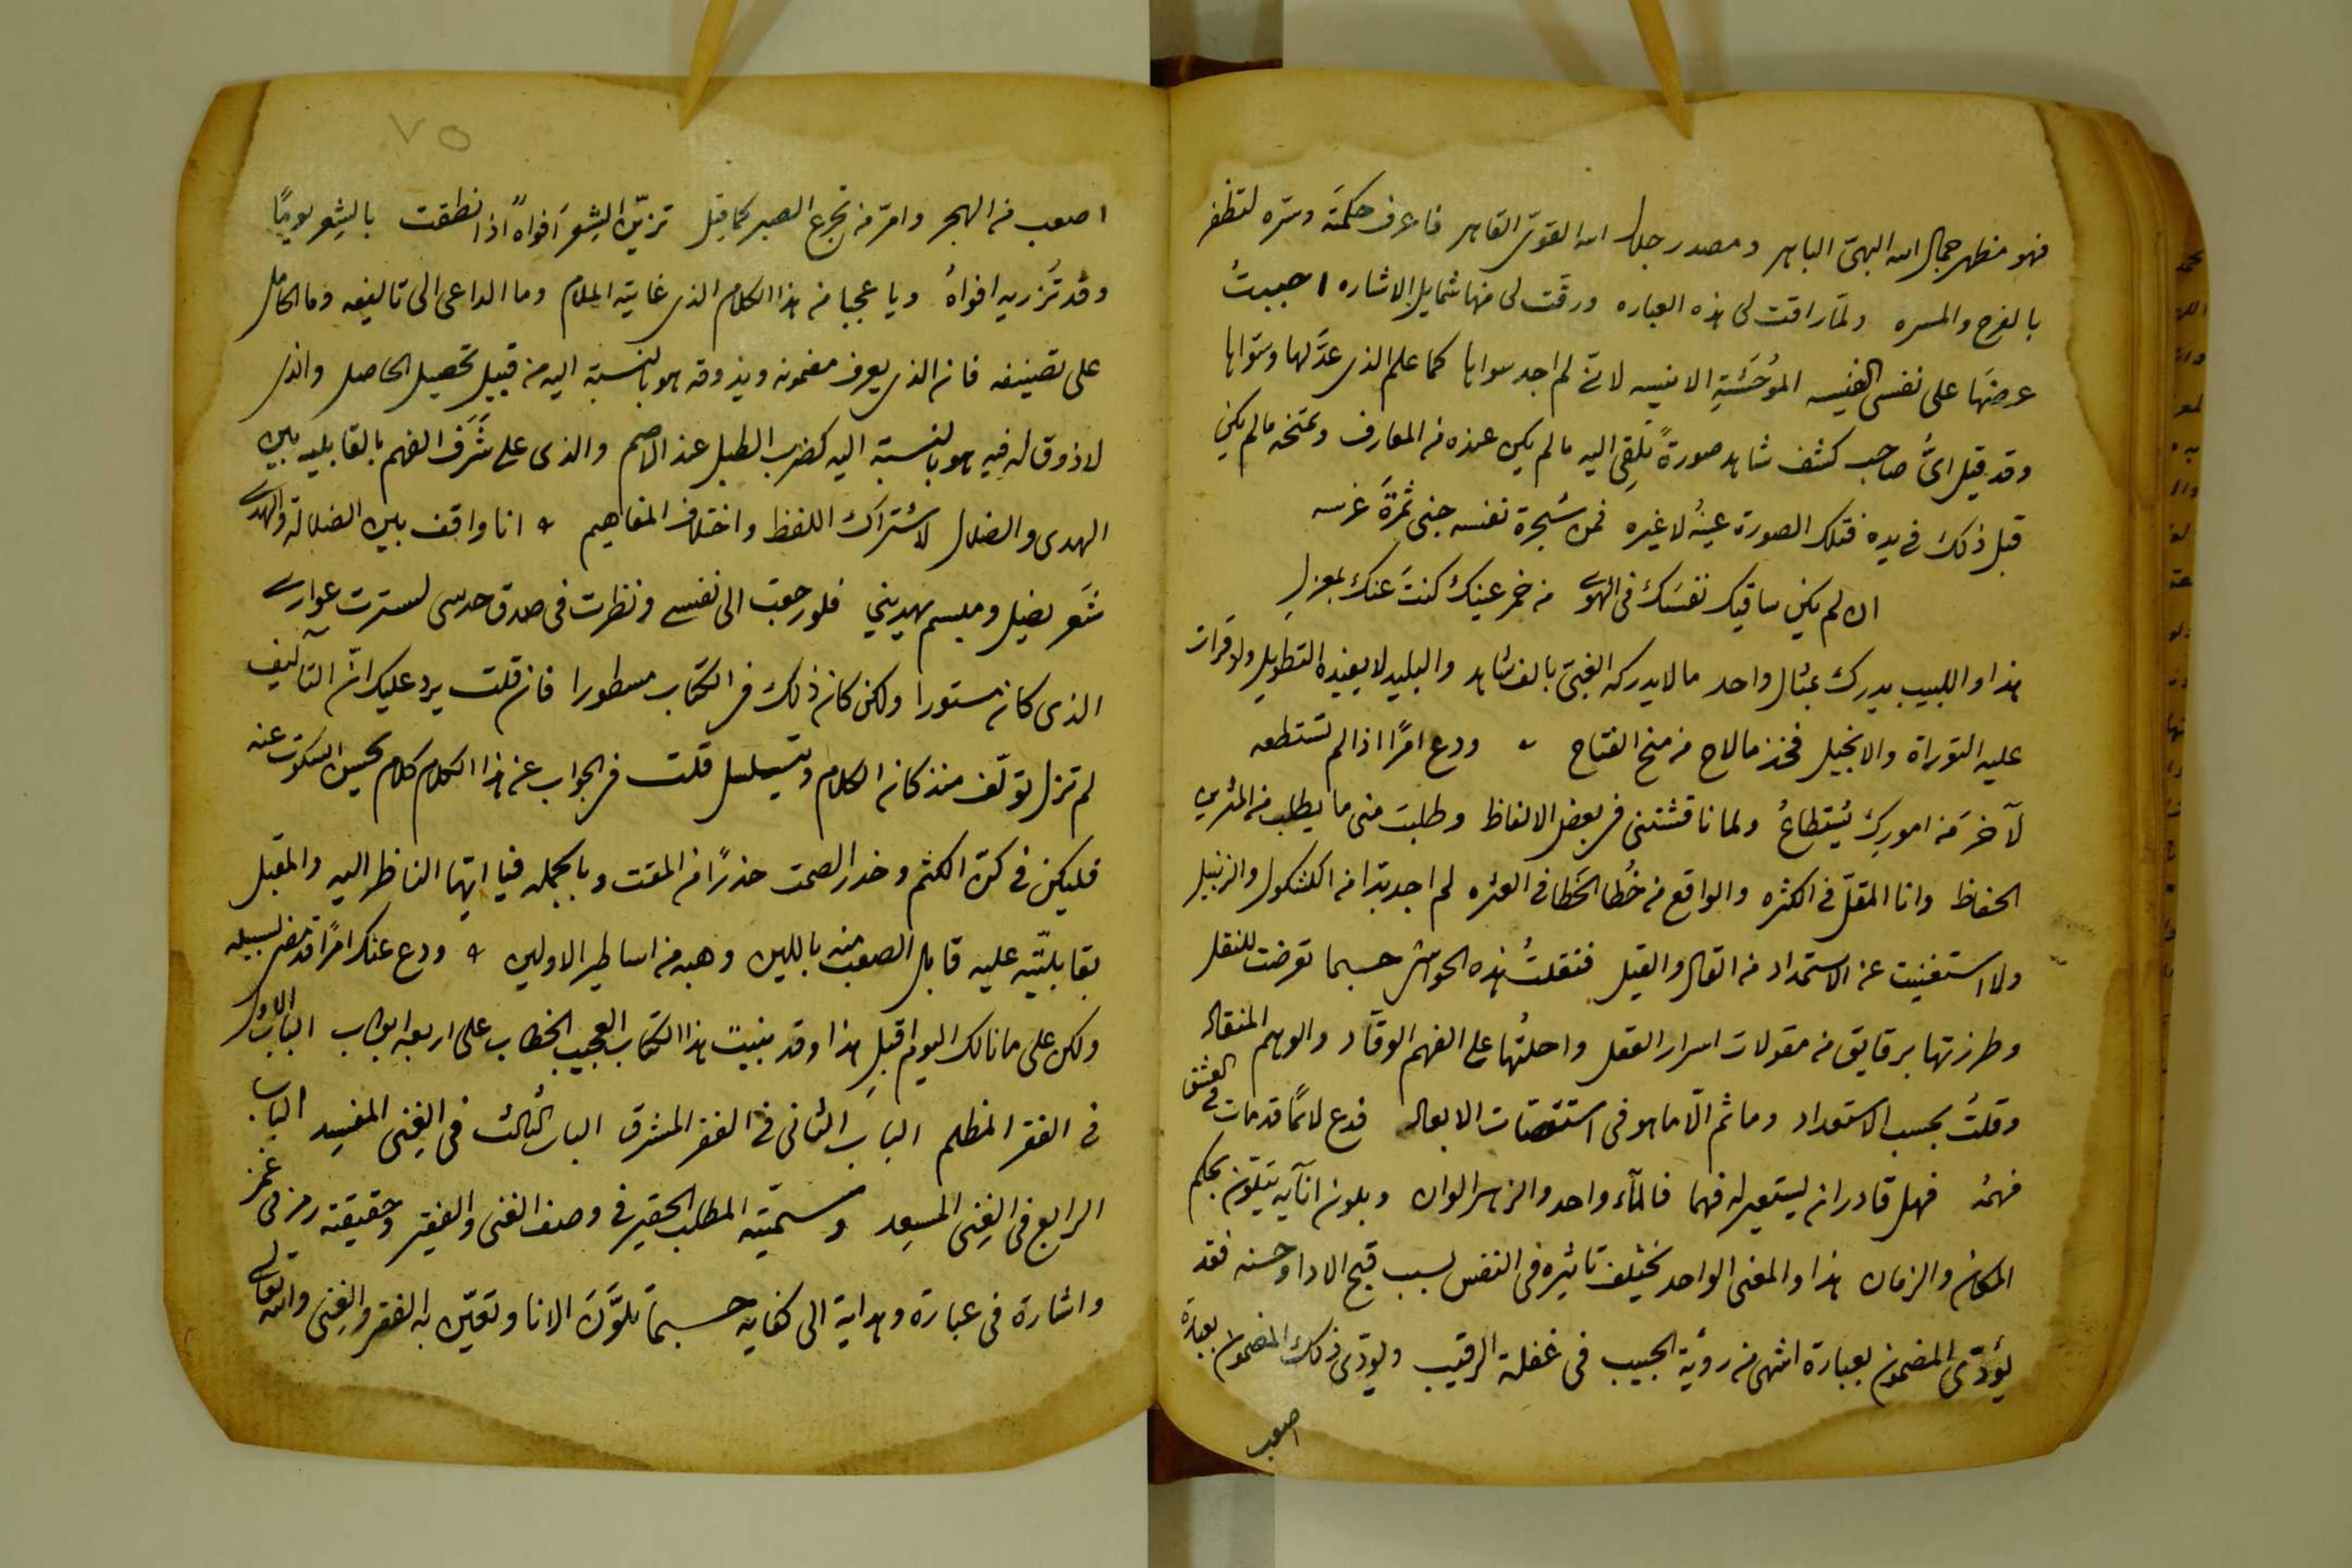 فهو مظهر جمال الله البهى الباهر ومصدر جلال الله القوى القاهر فاعرف حكمته وسره لتظفر
بالفرح والمسره ولما راقت لى هذه العباره ورقت لى منها شمايل الاشاره احببتُ
عرضها على نفسى النفيسه المؤحَشَةِ الانيسه لانّى لم اجد سواها كما علم الذى عدّلها وسَوّاها
وقد قيل اىّ صاحب كشف شاهد صورةً تُلقِى اليه مالم يكن عنده من المعارف وتمنحه مالم يكن
قبل ذلك فى يده فتلك الصورة عينُه لا غيره فمن شجرة نفسه جنى ثمرةَ غرسه
ان لم يكن ساقيك نفسَك فى الهوى من خمر عينك كنتَ عنك بمعزلِ
هذا واللبيب يدرك بمثال واحد مالا يدركه الغبىّ بالف شاهد والبليد لا يفيده التطويل ولو قرات
عليه التوراة والانجيل فخذ مالاح من منح الفتاح ودع امرًا اذا لم تستطعه
لآخرَ من امورِكَ يُستطاعُ ولما ناقشتنى فى بعض الالفاظ وطلبتَ منى ما يطلب من المثرين
الحفاظ وانا المقلّ فى الكثره والواقع من خُطا الخَطا فى العثره لم اجد بدًا من الكشكول والزنبيل
ولا استغنيت عن الاستمداد من القال والقيل فنقلتُ هذه الحواشى حسبما تعرضت للنقل
وطرزتها برقايق من مقولات اسرار العقل واحلتُها على الفهم الوقّاد والوهم المنقاد
وقلتُ بحسب الاستعداد وما ثم الّا ما هو فى استقصات الابعاد فدع لائمًا قد مات فى العشق
فهمُه فهل قادر ان يستعير له فهما فالمآء واحد والزهر الوان وبلون انآيه يتلوّن بحكم
المكان والزمان هذا والمعنى الواحد يختلف تاثيره فى النفس بسبب قبح الادا وحسنه فقد
يُؤدّى المضمون بعبارة اشهى من روية الحبيب فى غفلة الرقيب ويؤدّى ذلك المضمون بعبارة
اصعب
٧٥
اصعب من الهجر وامرّ من تجرع الصبر كما قيل تزيّن الشِعرَ افواهٌ اذا نطقت بالشِعر يومًا
وقد تُزريه افواهُ ويا عجبا من هذا الكلام الذى غايته الملام وما الداعى الى تاليفه وما الحامل
على تصنيفه فان الذى يعرف مضمونه ويذوقه هو بالنسبة اليه من قبيل تحصيل الحاصل والذى
لا ذوق له فيه هو بالنسبة اليه كضرب الطبل عند الاصم والذى على شَرَف الفهم بالقابليه بين
الهدى والضلال لاشتراك اللفظ واختلاف المفاهيم انا واقف بين الضلالة والهدى
شَعر يضيل ومبسم يهدينى فلو رجعت الى نفسى ونظرت فى صدق حدسى لسترت عوارى
الذى كان مستورا ولكن كان ذلك فى الكتاب مسطورا فان قلت يرد عليك انّ التآليف
لم تزل تولّف منذ كان الكلام ويتسلسل قلت فى الجواب عن هذا الكلام كلام يحسن السكوت عنه
فليكن فى كنّ الكتم وخدر الصمت حذرًا من المقت وبالجمله فيا ايّها الناظر اليه والمقبل
بقابليّته عليه قابل الصعب منه باللين وهبه من اساطير الاولين ودع عنك امرًا قد مضى لسبيله
ولكن على ما نالك اليوم اقبلِ هذا وقد بنيت هذا الكتاب العجيب الخطاب على اربعه ابواب الباب الاول
فى الفقر المظلم الباب الثانى فى الفقر المشرق الباب الثالث فى الغِنى المفسِد الباب
الرابع فى الغِنى المسعِد وسمّيته المطلب الحقير فى وصف الغنى والفقير وحقيقته رمز فى غمز
واشارة فى عبارة وهداية الى كفايه حسبما تلوَّنَ الانا وتعيّن به الفقر والغِنى والله تعالى